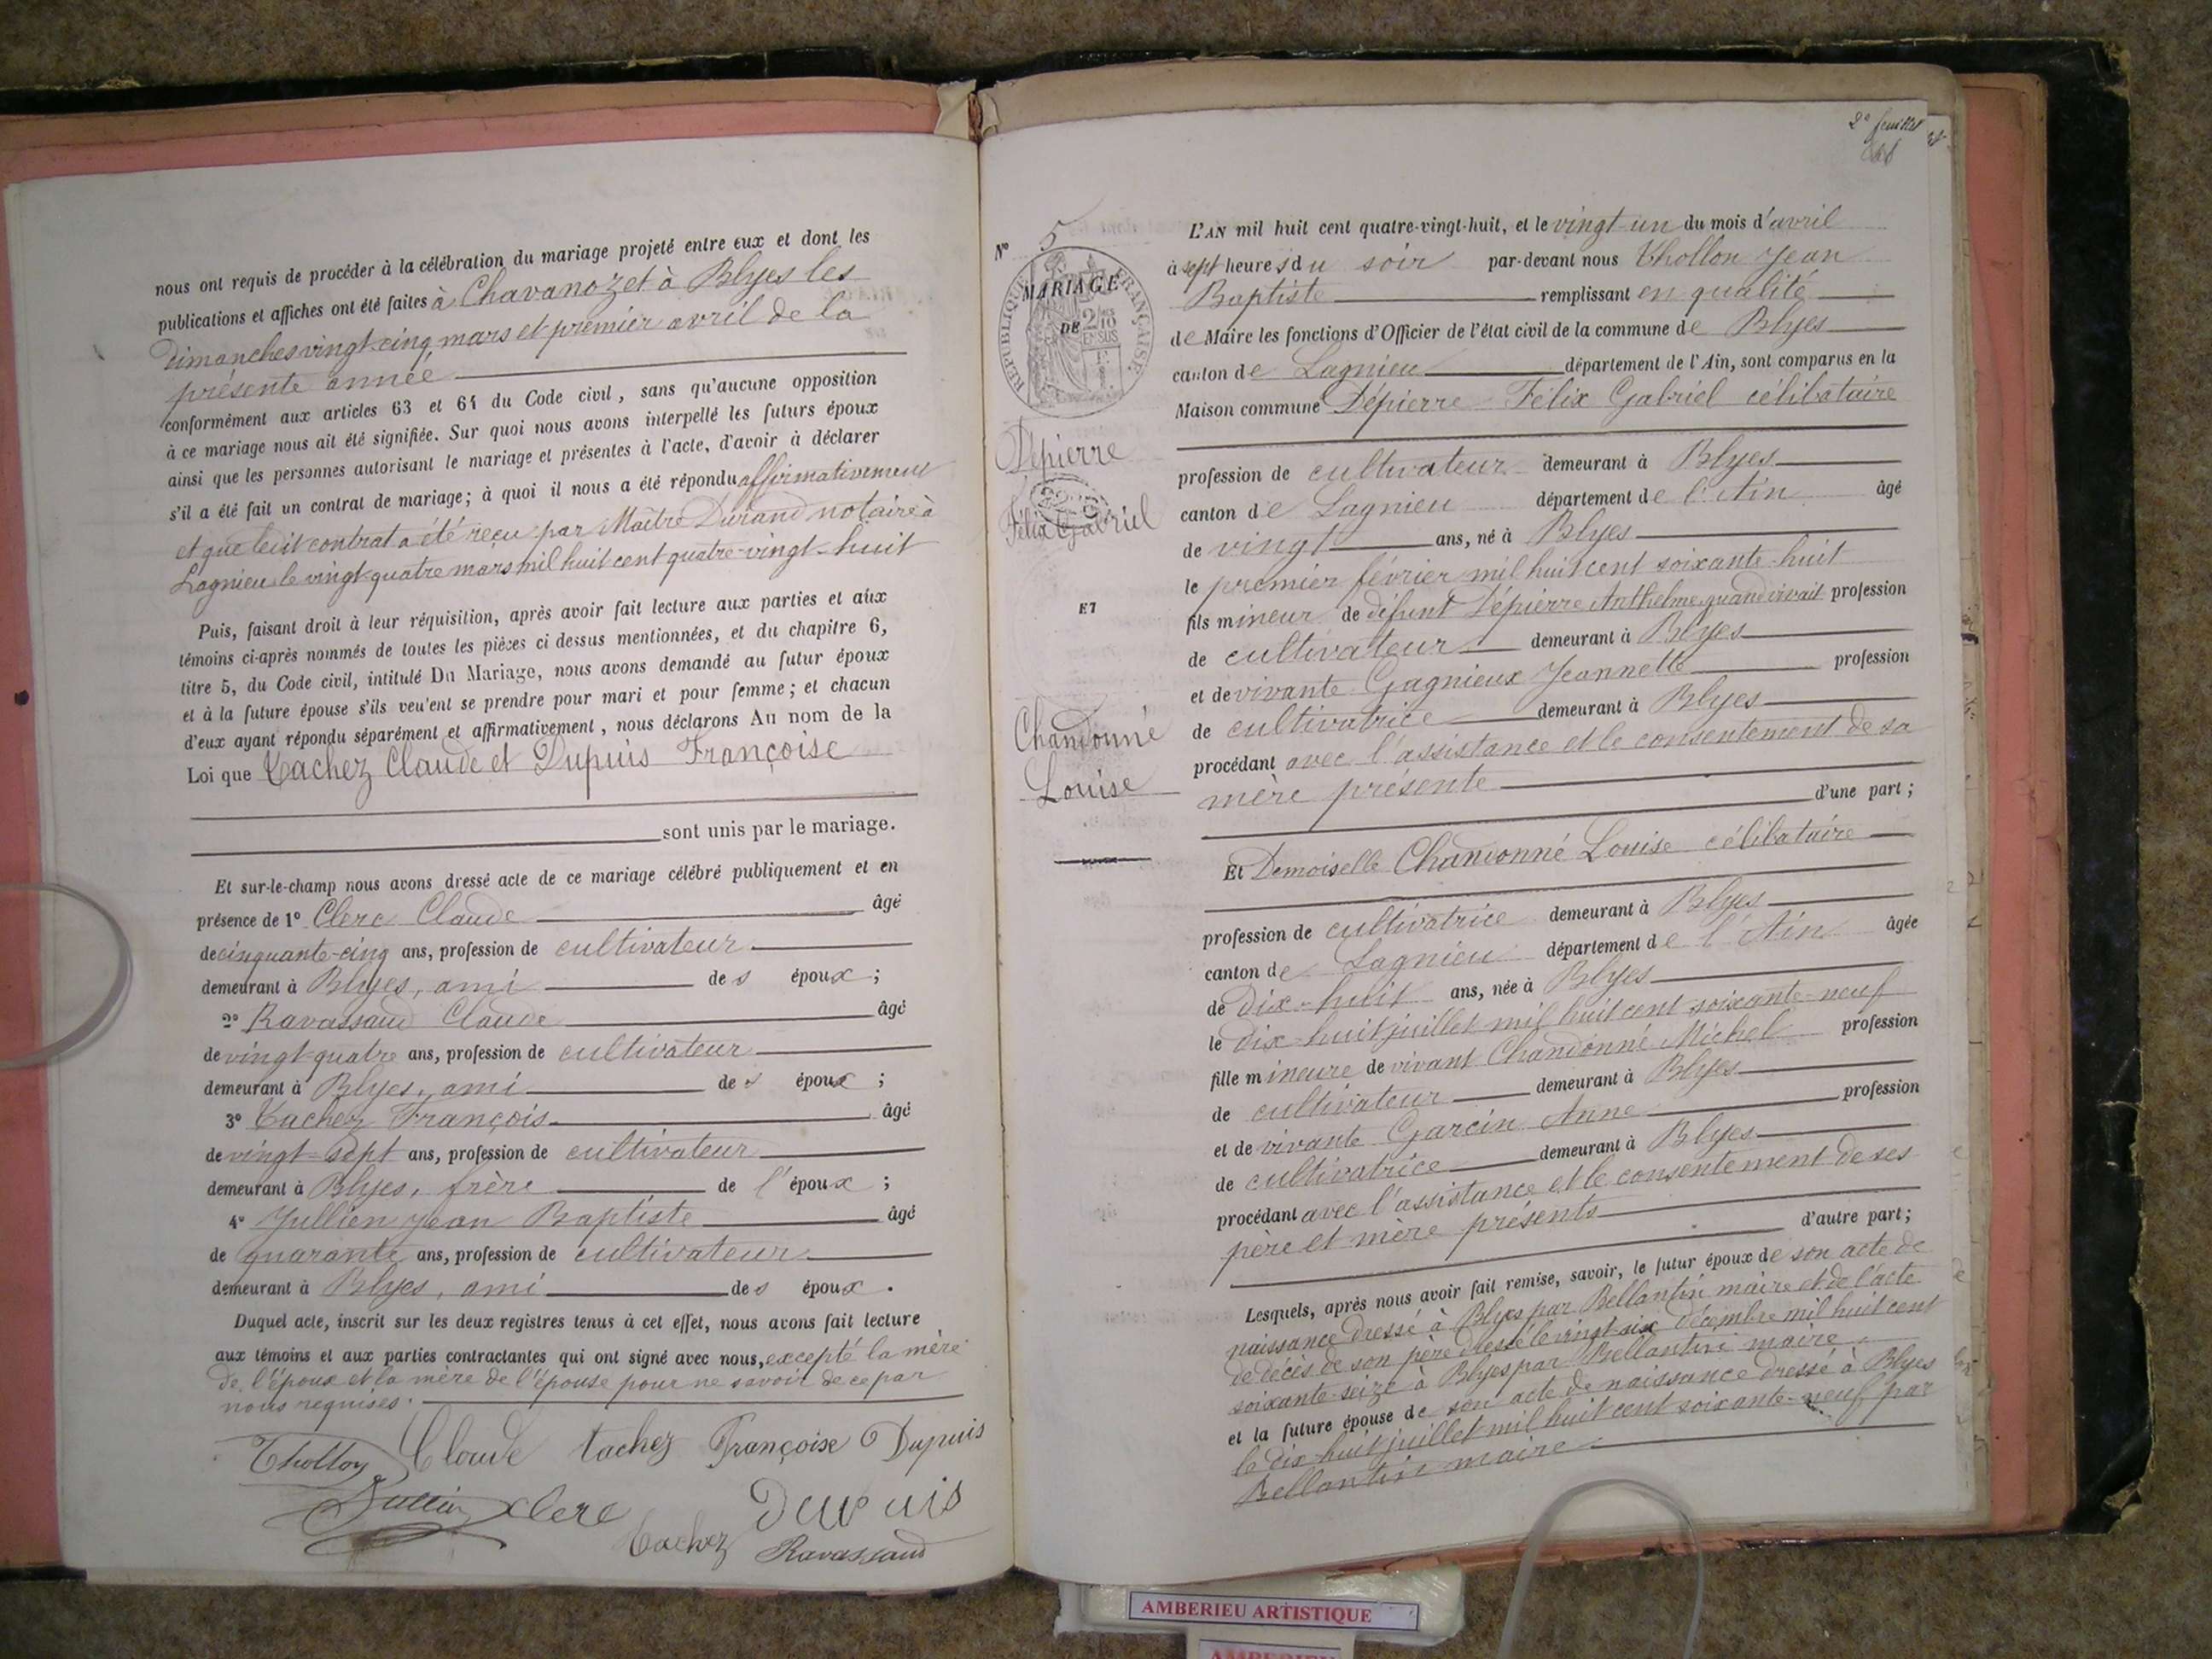 nous ont requis de procéder à la célébration du mariage projeté entre eux et dont les
publications et affiches ont été faites à Chavanoz et à Blyes les
dimanches vingt-cinq mars et premier avril de la
présente année
conformément aux articles 63 et 64 du Code civil, sans qu'aucune opposition
à ce mariage nous ait été signifiée. Sur quoi nous avons interpellé les futurs époux
ainsi que les personnes autorisant le mariage et présentes à l'acte, d'avoir à déclarer
s'il a été fait un contrat de mariage; à quoi il nous a été répondu affirmativement
et que ledit contrat a été reçu par Maître Durand notaire à
Lagnieu le vingt-quatre mars mil huit cent quatre-vingt-huit
Puis, faisant droit à leur réquisition, après avoir fait lecture aux parties et aux
témoins ci-après nommés de toutes les pièces ci dessus mentionnées, et du chapitre 6,
titre 5, du Code civil, intitulé Du Mariage, nous avons demandé au futur époux
et à la future épouse s'ils veu'ent se prendre pour mari et pour femme; et chacun
d'eux ayant répondu séparément et affirmativement, nous déclarons Au nom de la
Loi que Tachez Claude et Dupuis Françoise
sont unis par le mariage.
Et sur-le-champ nous avons dressé acte de ce mariage célébré publiquement et en
présence de 1° Clerc Claude âgé
de cinquante-cinq ans, profession de cultivateur
demeurant à Blyes, ami des époux;
2° Ravassaud Claude âgé
de vingt-quatre ans, profession de cultivateur
demeurant à Blyes, ami des époux;
3° Tachez François âgé
de vingt-sept ans, profession de cultivateur
demeurant à Blyes, frère de l'époux;
4° Jullien Jean Baptiste âgé
de quarante ans, profession de cultivateur
demeurant à Blyes, ami des époux.
Duquel acte, inscrit sur les deux registres tenus à cet effet, nous avons fait lecture
aux témoins et aux parties contractantes qui ont signé avec nous, excepté la mère
de l'époux et la mère de l'épouse pour ne savoir de ce par
nous requises.
Thollon Claude tachez Françoise Dupuis
Jullien Clerc Dupuis
Tachez Ravassaud
2e feuillet
N° 5
RÉPUBLIQUE FRANÇAISE
MARIAGE
DE
2/10 EN SUS
Dépierre
Félix Gabriel
ET
Chandonné
Louise
L'AN mil huit cent quatre-vingt-huit, et le vingt-un du mois d'avril
à sept heures du soir par-devant nous Thollon Jean
Baptiste remplissant en qualité
de Maire les fonctions d'Officier de l'état civil de la commune de Blyes
canton de Lagnieu département de l'Ain, sont comparus en la
Maison commune Dépierre Félix Gabriel célibataire
profession de cultivateur demeurant à Blyes
canton de Lagnieu département de l'Ain âgé
de vingt ans, né à Blyes
le premier février mil huit cent soixante-huit
fils mineur de défunt Dépierre Anthelme quand vivait profession
de cultivateur demeurant à Blyes
et de vivante Gagnieux Jeannette profession
de cultivatrice demeurant à Blyes
procédant avec l'assistance et le consentement de sa
mère présente
d'une part;
Et Demoiselle Chandonné Louise célibataire
profession de cultivatrice demeurant à Blyes
canton de Lagnieu département de l'Ain âgée
de dix-huit ans, née à Blyes
le dix-huit juillet mil huit cent soixante-neuf
fille mineure de vivant Chandonné Michel profession
de cultivateur demeurant à Blyes
et de vivante Garcin Anne profession
de cultivatrice demeurant à Blyes
procédant avec l'assistance et le consentement de ses
père et mère présents
d'autre part;
Lesquels, après nous avoir fait remise, savoir, le futur époux de son acte de
naissance dressé à Blyes par Bellantin maire et de l'acte
de décès de son père dressé le vingt-six décembre mil huit cent
soixante-seize à Blyes par Bellantin maire
et la future épouse de son acte de naissance dressé à Blyes
le dix-huit juillet mil huit cent soixante-neuf par
Bellantin maire
AMBERIEU ARTISTIQUE
AMBERIEU